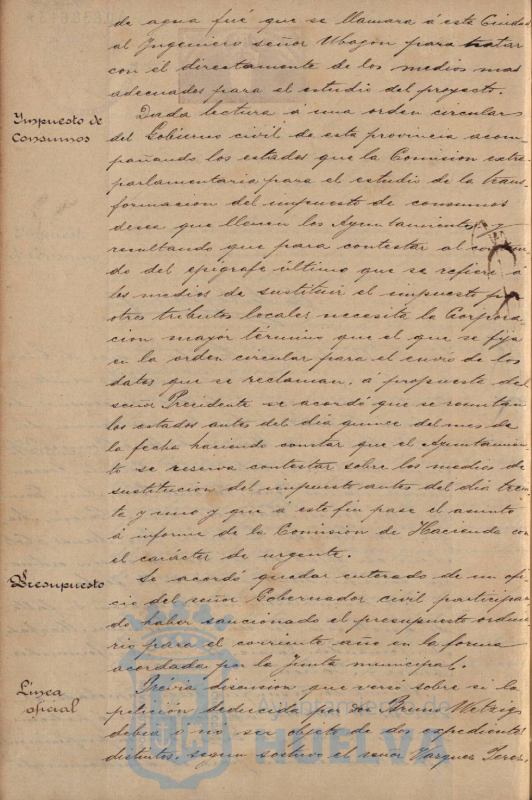 de agua fué que se llamara á esta Ciudad
al Ingeniero señor Ubagón para tratar
con él directamente de los medios mas
adecuados para el estudio del proyecto.
Impuesto de
Consumos
Dada lectura á una orden circular
del Gobierno civil de esta provincia acom-
pañando los estados que la Comision extra
parlamentaria para el estudio de la trans
formacion del impuesto de consumos
desea que llenen los Ayuntamientos y
resultando que para contestar al
do del epígrafe último que se refiere á
los medios de sustituir el impuesto por
otros tributos locales necesita la Corpora-
cion mayor término que el que se fija
en la orden circular para el envío de los
datos que se reclaman, á propuesta del
señor Presidente se acordó que se remitan
los estados antes del dia quince del mes de
la fecha haciendo constar que el Ayuntamien-
to se reserva contestar sobre los medios de
sustitucion del impuesto antes del dia trein
ta y uno y que á este fin pase el asunto
á informe de la Comision de Hacienda con
el carácter de urgente.
Presupuesto
Se acordó quedar enterado de un ofi
cio del señor Gobernador civil participan
do haber sancionado el presupuesto ordina
rio para el corriente año en la forma
acordada por la Junta municipal.
Línea
oficial
Prévia discusion que versó sobre si la
peticion deducida por don Bruno Wetzig
debia ó no ser objeto de dos expedientes
distintos, segun sostuvo el señor Vazquez Perez,
Ayuntamiento de
HUELVA